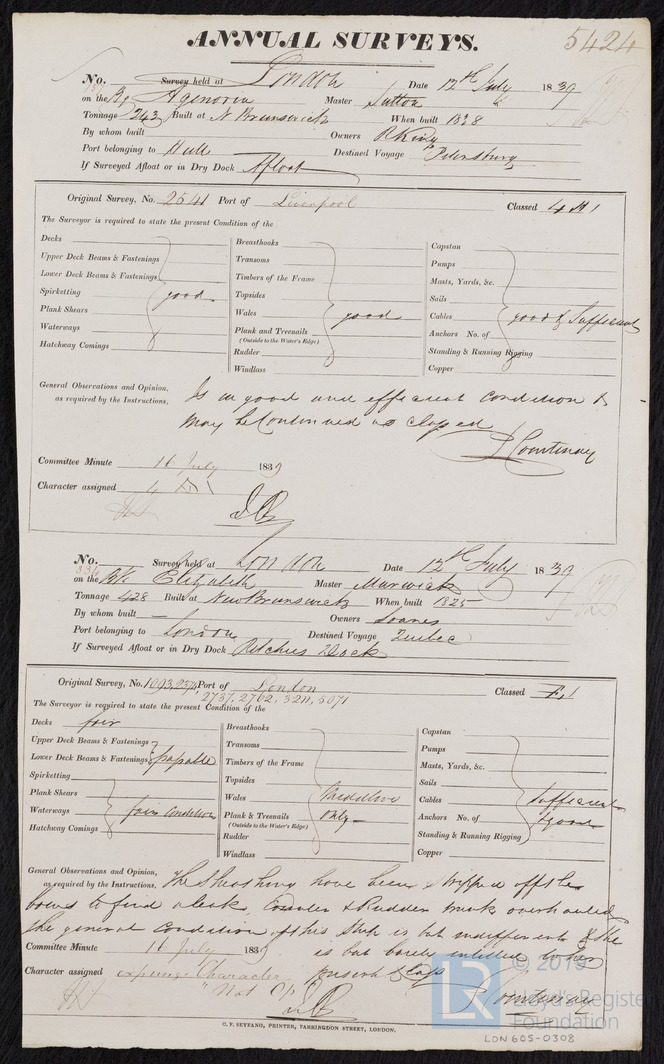 ANNUAL SURVEYS.
5424
No. Survey held at London Date 12th July 1839
on the Bg Agenoria Master Sutton
Tonnage 243 Built at N Brunswick When built 1838
By whom built Owners R King
Port belonging to Hull Destined Voyage Petersburg
If Surveyed Afloat or in Dry Dock Afloat
Original Survey, No. 2541 Port of Liverpool Classed 4 A 1
The Surveyor is required to state the present Condition of the
Decks
Upper Deck Beams & Fastenings
Lower Deck Beams & Fastenings
Spirketting good
Plank Shears
Waterways
Hatchway Comings
Breasthooks
Transoms
Timbers of the Frame
Topsides
Wales good
Plank and Treenails
(Outside to the Water's Edge)
Rudder
Windlass
Capstan
Pumps
Masts, Yards, &c.
Sails
Cables good & Sufficient
Anchors No. of
Standing & Running Rigging
Copper
General Observations and Opinion, Is in good and efficient condition &
as required by the Instructions. may be Continued as classed
Courtenay
Committee Minute 16 July 1839
Character assigned 4 A 1
No. Survey held at London Date 12th July 1839
on the Bk Elizabeth Master Marwick
Tonnage 428 Built at New Brunswick When built 1825
By whom built — Owners Soanes
Port belonging to London Destined Voyage Quebec
If Surveyed Afloat or in Dry Dock Ritchies Dock
Original Survey, No. 1093, Port of London Classed E. 1
2737, 2762, 3211, 5071
The Surveyor is required to state the present Condition of the
Decks fair
Upper Deck Beams & Fastenings
Lower Deck Beams & Fastenings passable
Spirketting
Plank Shears
Waterways fair Condition
Hatchway Comings
Breasthooks
Transoms
Timbers of the Frame
Topsides
Wales
Plank & Treenails only
(Outside to the Water's Edge)
Rudder
Windlass
Capstan
Pumps
Masts, Yards, &c.
Sails
Cables Sufficient
Anchors No. of good
Standing & Running Rigging
Copper
General Observations and Opinion,
as required by the Instructions, The Sheathing have been stripped off the
bows to find a leak. Counter & Rudder trunk overhauled
the general condition of this Ship is but indifferent & she
is but barely entitled to her
present Class
Committee Minute 16 July 1839
Character assigned expunge Character
"Not
Courtenay
C. F. SEYFANG, PRINTER, FARRINGDON STREET, LONDON.
LR
© 2019
Lloyd's Register
Foundation
LON 605-0308